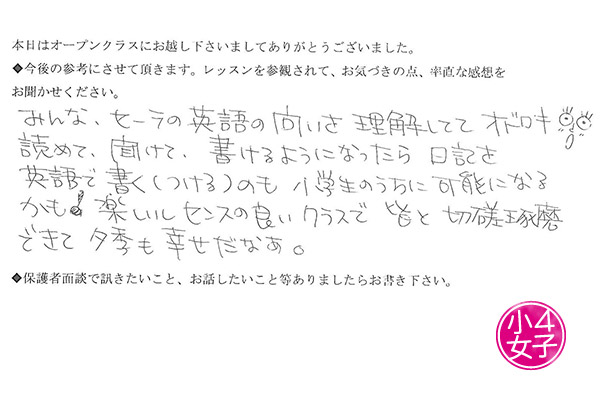 本日はオープンクラスにお越し下さいましてありがとうございました。
◆今後の参考にさせて頂きます。レッスンを参観されて、お気づきの点、率直な感想を
お聞かせください。
みんな、セーラの英語の問いを理解してて オドロキ
読めて、聞けて、書けるようになったら 日記を
英語で書く(つける)のも 小学生のうちに 可能になる
かも! 楽しいし センスの良い クラスで 皆と 切磋琢磨
できて 夕季も 幸せだなあ。
◆保護者面談で訊きたいこと、お話したいこと等ありましたらお書き下さい。
小4
女子